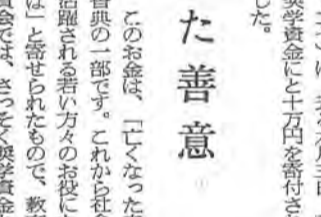 八月三日
奨学資金にと十万円を寄付さ
した。
た善意
このお金は、「亡くなった
香典の一部です。これから社会
活躍される若い方々のお役に
ば」と寄せられたもので、教
会では、さっそく奨学資金